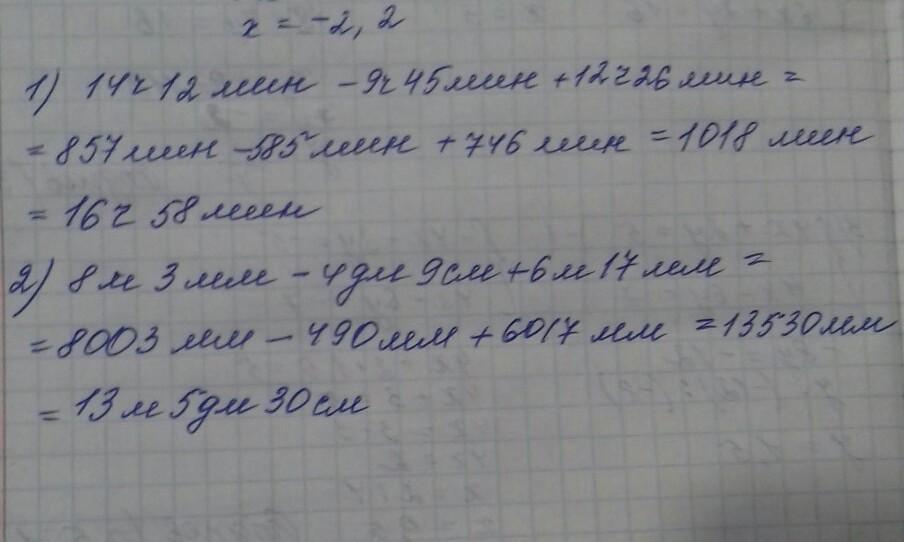 x = -2,2
1) 14ч 12 мин - 9ч 45 мин + 12ч 26 мин =
= 857 мин - 585 мин + 746 мин = 1018 мин
= 16ч 58 мин
2) 8м 3мм - 4дм 9см + 6м 17мм =
= 8003 мм - 490мм + 6017 мм = 13530мм
= 13м 5дм 30см